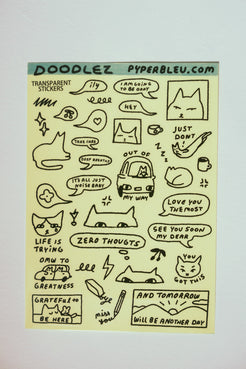 DOODLEZ PYPERBLEU.COM
TRANSPARENT
STICKERS
ily
I AM GOING
TO BE OKAY
HEY
JUST
DON'T
TAKE CARE
DEEP BREATHS
OUT OF
MY WAY
Z
Z
Z
IT'S ALL JUST
NOISE BABY
LOVE YOU
THE MOST
LIFE IS
TRYING
ZERO THOUGTS
SEE YOU SOON
MY DEAR
OMW TO
GREATNESS
YOU
GOT THIS
GRATEFUL TO
BE HERE
miss
you
AND TOMORROW
WILL BE ANOTHER DAY